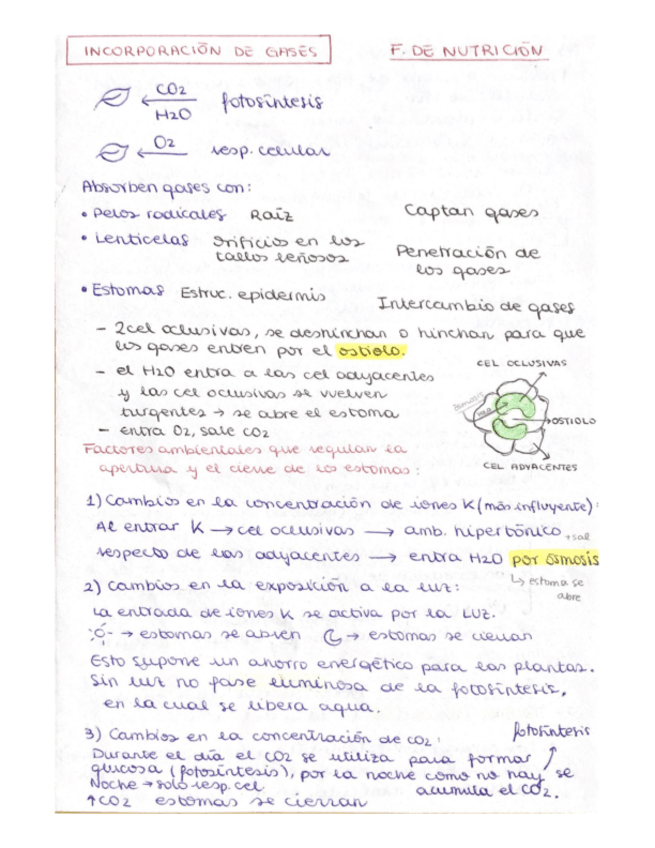 INCORPORACIÓN DE GASES F. DE NUTRICIÓN
CO2
H2O
fotosíntesis
O2
resp. celular
Absorben gases con:
• Pelos radicales Raíz Captan gases
• Lenticelas orificios en los
tallos leñosos
Penetración de
los gases
• Estomas Estruc. epidermis Intercambio de gases
- 2cel oclusivas, se deshinchan o hinchan para que
los gases entren por el ostiolo.
- el H2O entra a las cel adyacentes
y las cel oclusivas se vuelven
turgentes → se abre el estoma
- entra O2, sale CO2
CEL OCLUSIVAS
ósmosis
H2O
OSTIOLO
CEL ADYACENTES
Factores ambientales que regulan la
apertura y el cierre de los estomas:
1) Cambios en la concentración de iones K (más influyente):
Al entrar K → cel oclusivas → amb. hipertónico +sal
respecto de las adyacentes → entra H2O por ósmosis
↳ estoma se
abre
2) Cambios en la exposición a la luz:
La entrada de iones K se activa por la LUZ.
→ estomas se abren → estomas se cierran
Esto supone un ahorro energético para las plantas.
Sin luz no fase luminosa de la fotosíntesis,
en la cual se libera agua.
3) Cambios en la concentración de CO2:
fotosíntesis
Durante el día el CO2 se utiliza para formar
glucosa (fotosíntesis), por la noche como no hay, se
Noche → solo resp. cel. acumula el CO2.
↑CO2 estomas se cierran